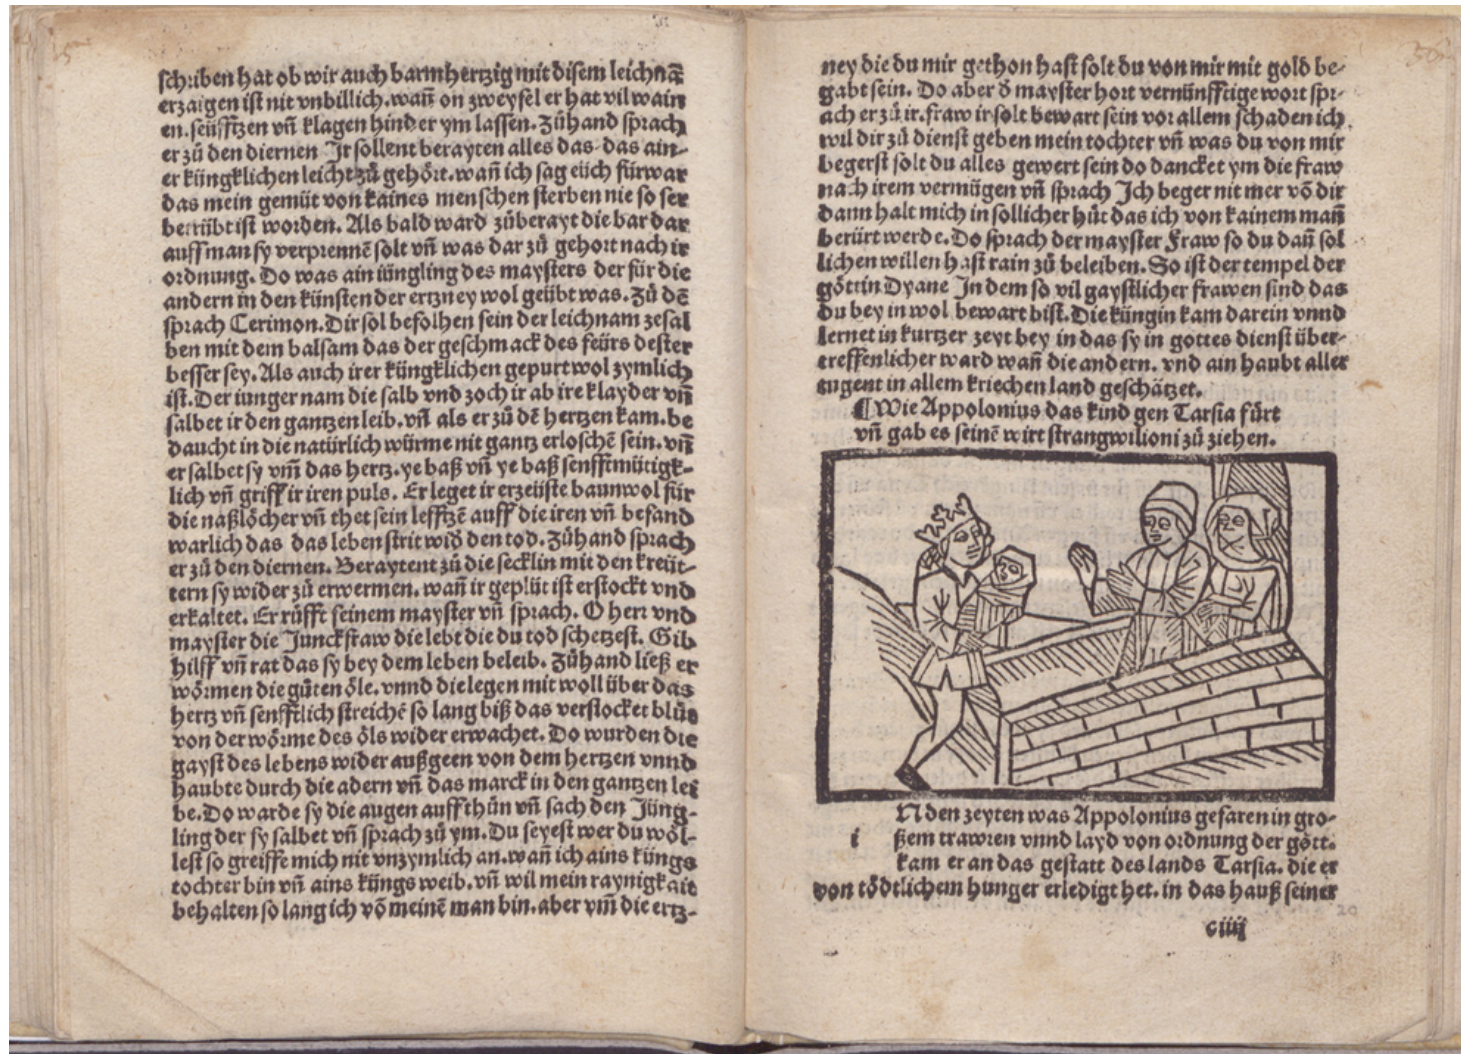 schriben hat ob wir auch barmhertzig mit disem leichnā
erzaigen ist nit vnbillich. wañ on zweysel er hat vil wain
en. seüfftzen vñ klagen hinder ym lassen. Zůhand sprach
er zů den diernen Ir sollent berayten alles das das ain-
er küngklichen leicht zů gehört. wañ ich sag eüch fürwar
das mein gemüt von kaines menschen sterben nie so ser
betrübt ist worden. Als bald ward zůberayt die bar dar
auff man sy verprennē solt vñ was dar zů gehort nach ir
ordnung. Do was ain iüngling des maysters der für die
andern in den künsten der ertzney wol geübt was. Zů dē
sprach Cerimon. Dir sol befolhen sein der leichnam ze sal
ben mit dem balsam das der geschmack des feürs dester
besser sey. Als auch irer küngklichen gepurt wol zymlich
ist. Der iunger nam die salb vnd zoch ir ab ire klayder vñ
salbet ir den gantzen leib. vñ als er zů dē hertzen kam. be
daucht in die natürlich würme nit gantz erloschē sein. vñ
er salbet sy vm̃ das hertz. ye baß vñ ye baß senfftmütigk-
lich vñ griff ir iren puls. Er leget ir erzeüste baunwol für
die naßlöcher vñ thet sein lefftzē auff die iren vñ befand
warlich das das leben strit wið den tod. Zůhand sprach
er zů den diernen. Beraytent zů die secklin mit den kreüt-
tern sy wider zů erwermen. wañ ir geplüt ist erstockt vnd
erkaltet. Er růfft seinem mayster vñ sprach. O herr vnd
mayster die Junckfraw die lebt die du tod schetzest. Gib
hilff vñ rat das sy bey dem leben beleib. Zůhand ließ er
wörmen die gůten öle. vnnd die legen mit woll über das
hertz vñ senfftlich streichē so lang biß das verstocket blůt
von der wörme des öls wider erwachet. Do wurden die
gayst des lebens wider außgeen von dem hertzen vnnd
haubte durch die adern vñ das marck in den gantzen lei
be. Do warde sy die augen auff thůn vñ sach den Jüng-
ling der sy salbet vñ sprach zů ym. Du seyest wer du wöl-
lest so greiffe mich nit vnzymlich an. wañ ich ains küngs
tochter bin vñ ains küngs weib. vñ wil mein raynigkait
behalten so lang ich vō meinē man bin. aber vm̃ die ertz-
ney die du mir gethon hast solt du von mir mit gold be-
gabt sein. Do aber ð mayster hort vernünfftige wort spr-
ach er zů ir. fraw ir solt bewart sein vor allem schaden ich
wil dir zů dienst geben mein tochter vñ was du von mir
begerst solt du alles gewert sein do dancket ym die fraw
nach irem vermügen vñ sprach Ich beger nit mer vō dir
dann halt mich in sollicher hůt das ich von kainem mañ
berürt werde. Do sprach der mayster Fraw so du dañ sol
lichen willen hast rain zů beleiben. So ist der tempel der
göttin Dyane In dem so vil gaystlicher frawen sind das
du bey in wol bewart bist. Die küngin kam darein vnnd
lernet in kurtzer zeyt bey in das sy in gottes dienst über-
treffenlicher ward wañ die andern. vnd ain haubt aller
tugent in allem kriechen land geschätzet.
¶ Wie Appolonius das kind gen Tarsia fůrt
vñ gab es seinē wirt strangwilioni zů ziehen.
i N den zeyten was Appolonius gefaren in gro-
ßem trawren vnnd layd von ordnung der gött.
kam er an das gestatt des lands Tarsia. die er
von tödtlichem hunger erledigt het. in das hauß seiner
c iiij